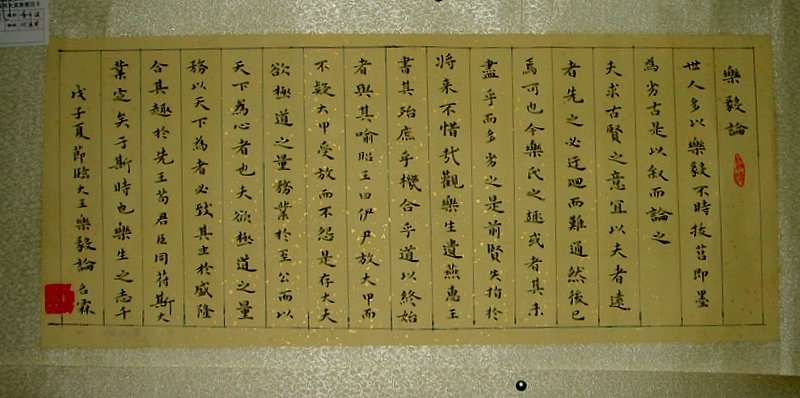 樂毅論
世人多以樂毅不時拔莒即墨
為劣古是以叙而論之
夫求古賢之意宜以大者遠
者先之必迂迴而難通然後已
焉可也今樂氏之趣或者其未
盡乎而多劣之是前賢失指於
將来不惜哉觀樂生遺燕惠王
書其殆庶乎機合乎道以終始
者與其喻昭王曰伊尹放大甲而
不疑大甲受放而不怨是存大夫
欲極道之量務業於至公而以
天下為心者也夫欲極道之量
務以天下為者必致其主於盛隆
合其趣於先王苟君臣同符斯大
業定矣于斯時也樂生之志千
戊子夏節臨大王樂毅論